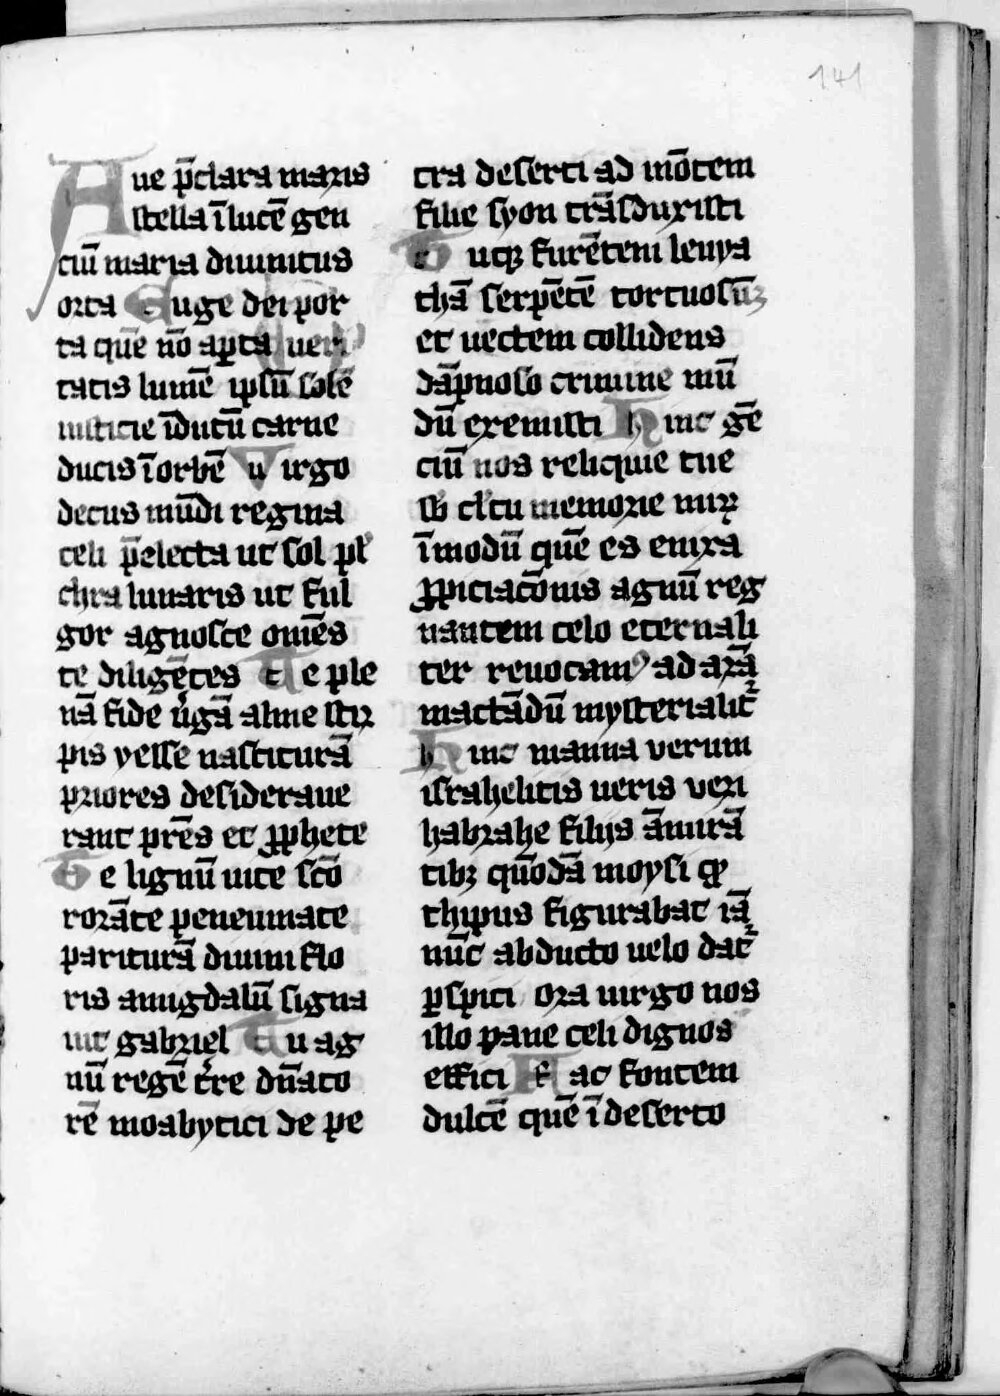 141
Aue p̄clara maris
stella ī lucē gen
ciū maria diuinitus
orta Euge dei por
ta que nō aꝑta ueri
tatis lumē ipsū solē
iusticie īdutū carne
ducis ī orbē Uirgo
decus mūdi regina
celi p̄electa ut sol pl̄
chra lunaris ut ful
gor agnosce om̄es
te diligētes Te ple
nā fide u̇gā alme stir
pis yesse nasciturā
priores desideraue
rant pr̄es et ꝓphete
Te lignū uite sc̄o
rorāte peneumate
pariturā diuini flo
ris amigdalū signa
uit gabriel Tu ag
nū regē t̄re dn̄ato
rē moabytici de pe
tra deserti ad mōtem
filie syon trāsduxisti
Tuqꝫ furētem leuya
thā serpētē tortuosūꝫ
et uectem collidens
dāpnoso crimine mū
dū exemisti Hinc gē
ciū nos reliquie tue
sb̄ cl̄tu memorie mir
ī modū quē es enixa
ꝓpiciacōnis agnū reg
nantem celo eternali
ter reuocamꝰ ad arā
mactādū mysterialit̄
Hinc manna verum
israhelitis ueris veri
habrahe filijs āmirā
tibꝫ quōdā moysi qͦ
thipus figurabat iā
nūc abducto uelo dat̄
ꝑspici ora uirgo nos
illo pane celi dignos
effici Fac fontem
dulcē quē ī deserto